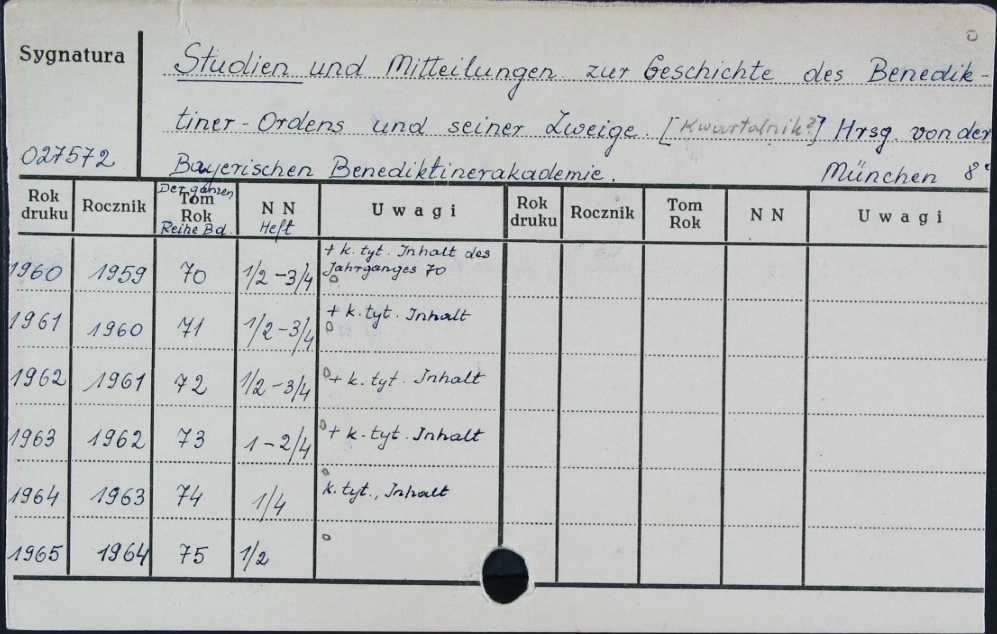 Sygnatura
Studien und Mitteilungen zur Geschichte des Benedik-
tiner-Ordens und seiner Zweige. [Kwartalnik?] Hrsg. von der
027572 Bayerischen Benediktinerakademie. München 8°
Rok druku Rocznik Der ganzen Tom Rok Reihe Bd. N N Heft Uwagi Rok druku Rocznik Tom Rok N N Uwagi
1960 1959 70 1/2 - 3/4 + k. tyt. Inhalt des Jahrganges 70
1961 1960 71 1/2 - 3/4 + k. tyt. Inhalt
1962 1961 72 1/2 - 3/4 + k. tyt. Inhalt
1963 1962 73 1 - 2/4 + k. tyt. Inhalt
1964 1963 74 1/4 k. tyt., Inhalt
1965 1964 75 1/2